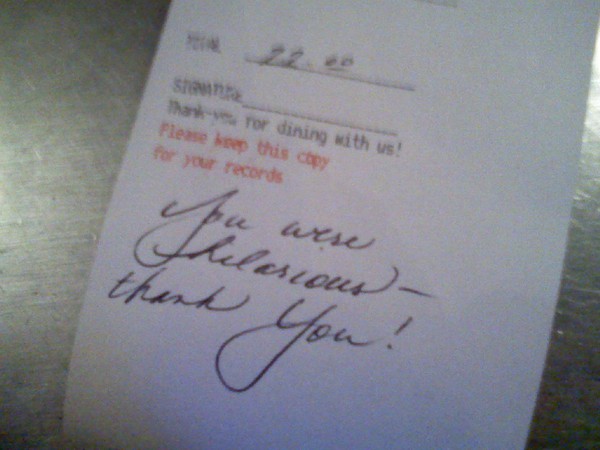 TOTAL 22.00
SIGNATURE
Thank-you for dining with us!
Please keep this copy
for your records
You were
hilarious-
thank You!